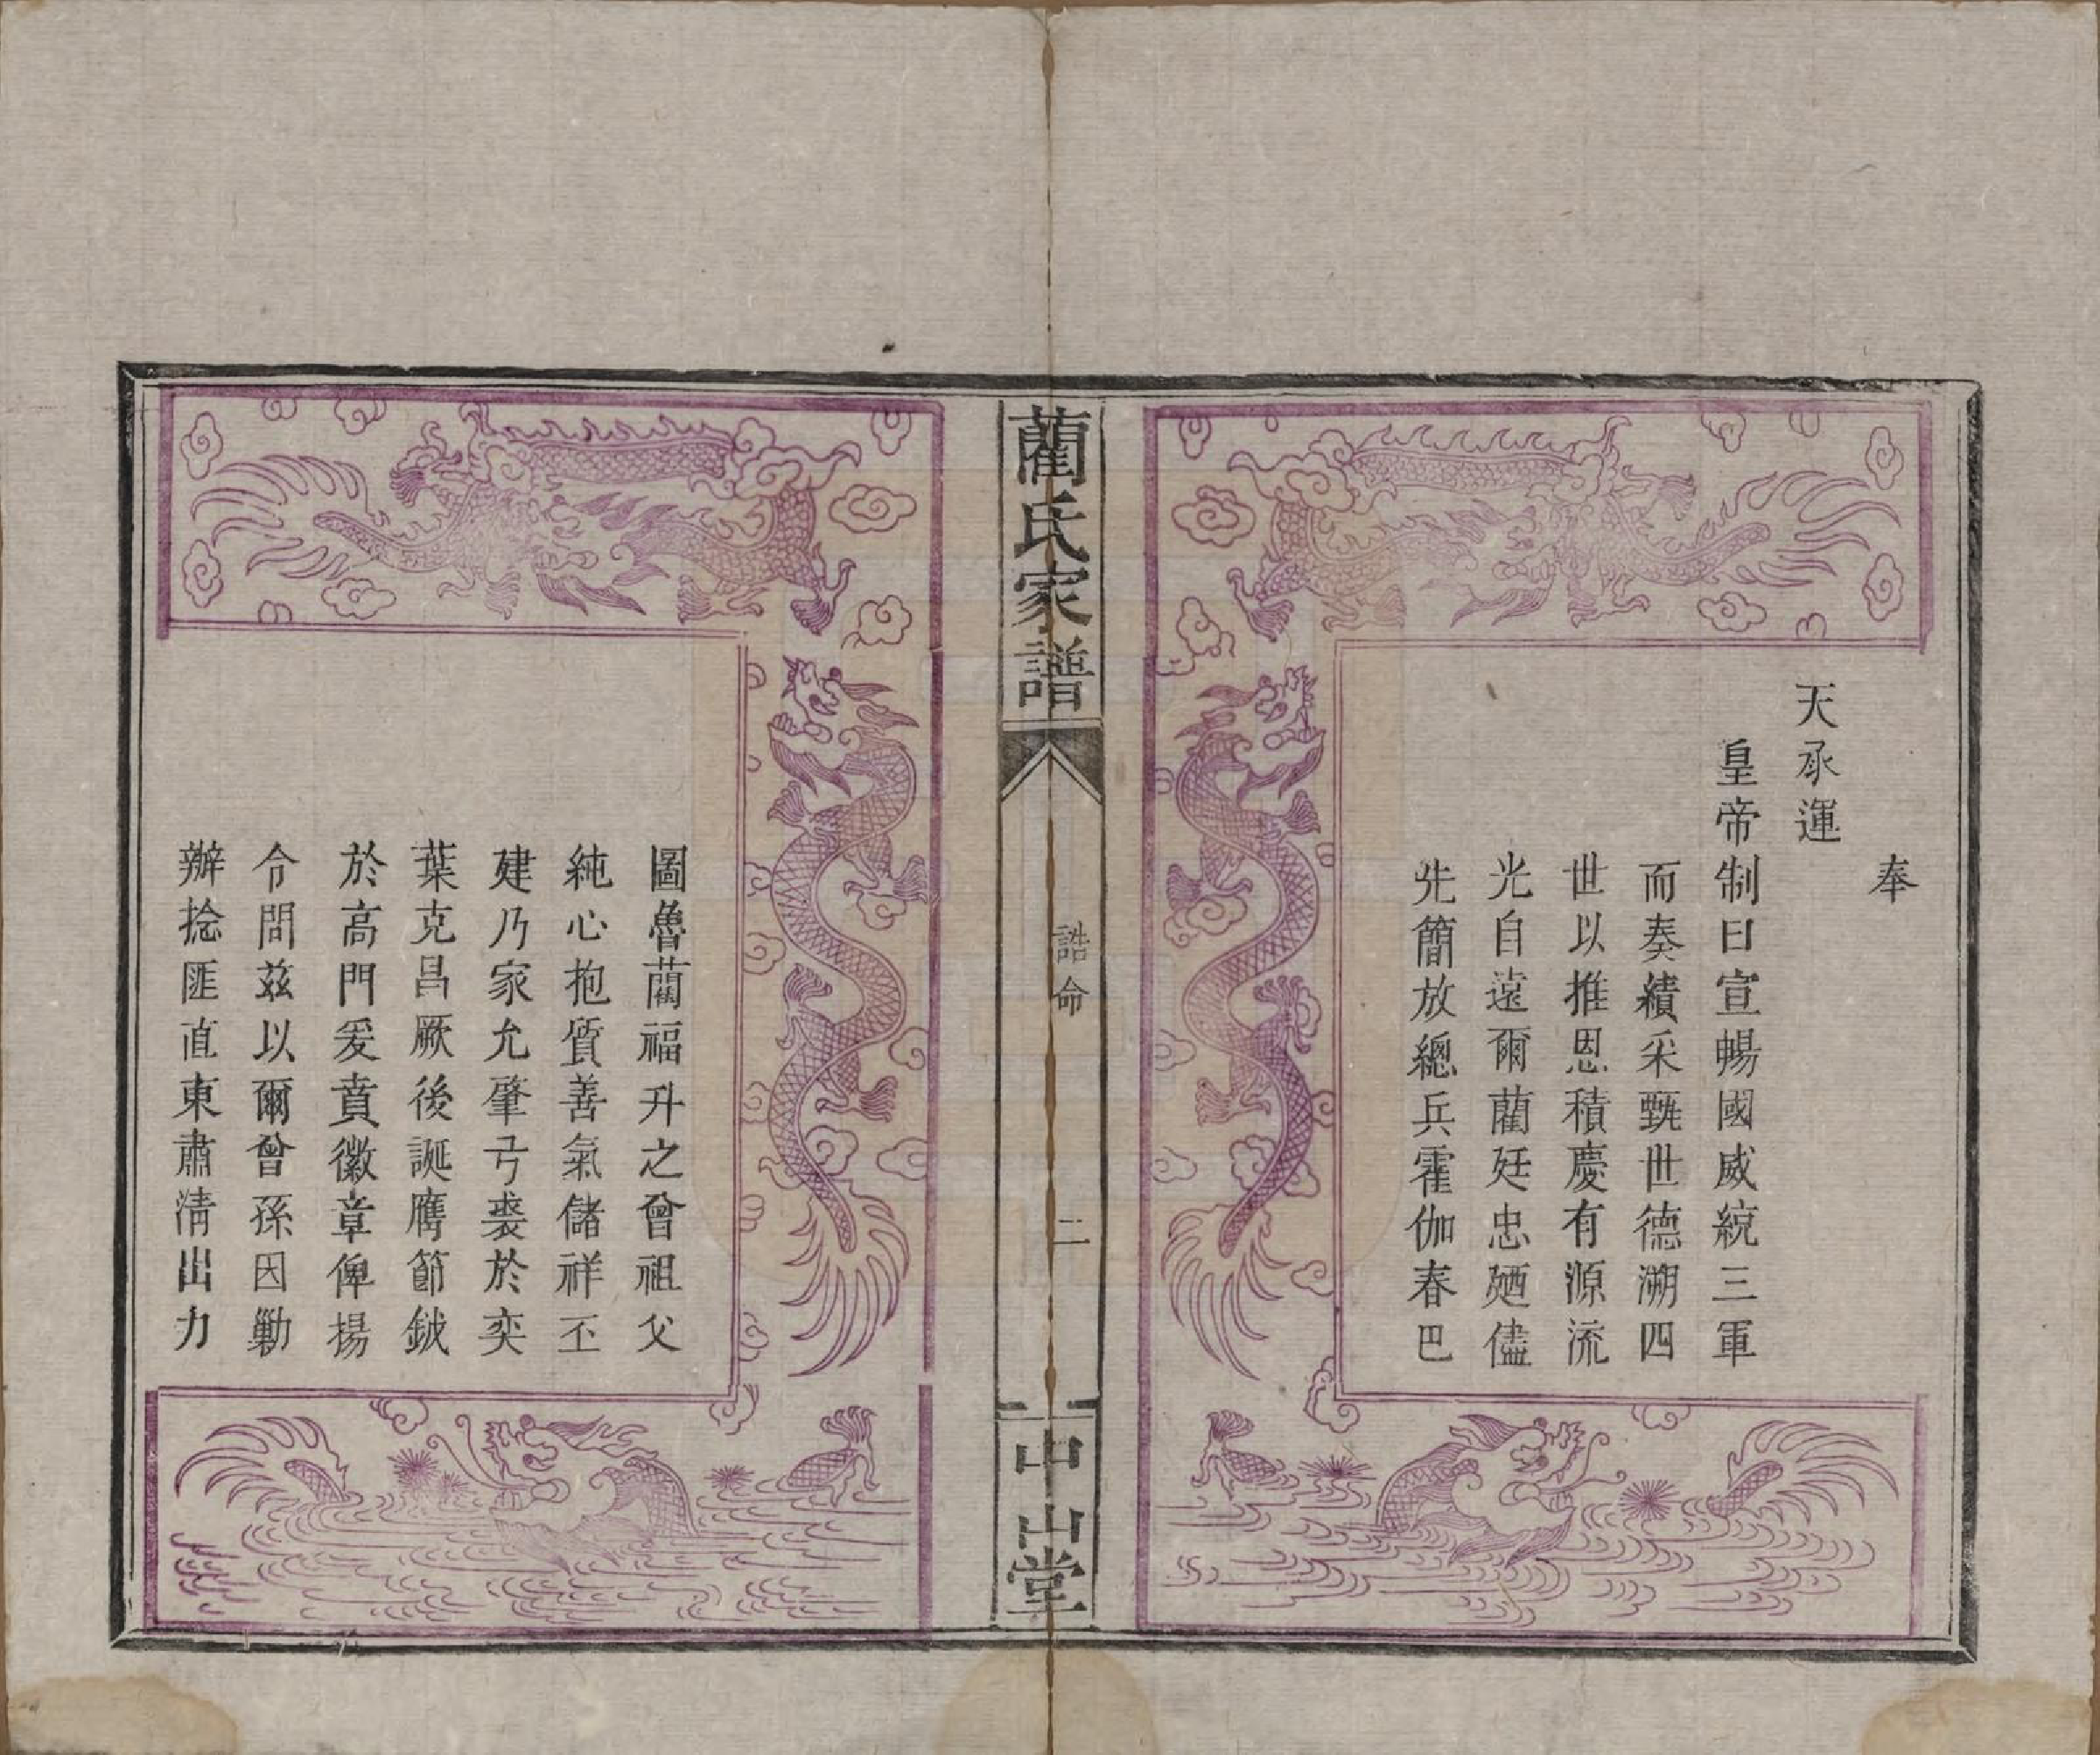 奉
天承運
皇帝制曰宣暢國威統三軍
而奏績采甄世德溯四
世以推恩積慶有源流
光自遠爾藺廷忠廼儘
先簡放總兵霍伽春巴
藺氏家譜
誥命
二
中山堂
圖魯藺福升之曾祖父
純心抱質善氣儲祥丕
建乃家允肇弓裘於奕
葉克昌厥後誕膺節鉞
於高門爰賁徽章俾揚
令問茲以爾曾孫因勦
辦捻匪直東肅清出力